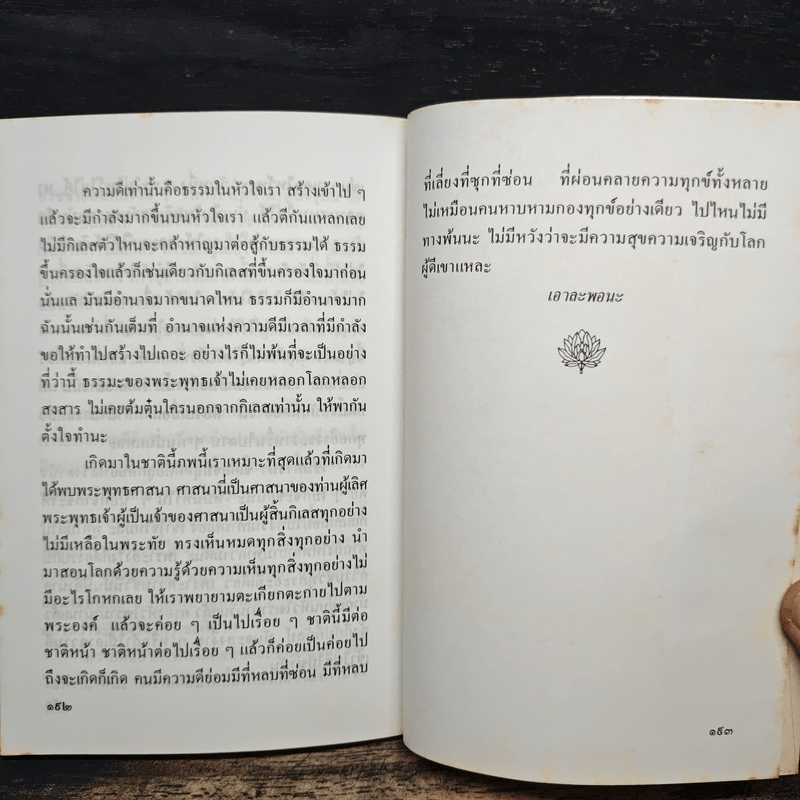 ความดีเท่านั้นคือธรรมในหัวใจเรา สร้างเข้าไป ๆ
แล้วจะมีกำลังมากขึ้นบนหัวใจเรา แล้วดีกันแหลกเลย
ไม่มีกิเลสตัวไหนจะกล้าหาญมาต่อสู้กับธรรมได้ ธรรม
ขึ้นครองใจแล้วก็เช่นเดียวกับกิเลสที่ขึ้นครองใจมาก่อน
นั่นแล มันมีอำนาจมากขนาดไหน ธรรมก็มีอำนาจมาก
ฉันนั้นเช่นกันเต็มที่ อำนาจแห่งความดีมีเวลาที่มีกำลัง
ขอให้ทำไปสร้างไปเถอะ อย่างไรก็ไม่พ้นที่จะเป็นอย่าง
ที่ว่านี้ ธรรมะของพระพุทธเจ้าไม่เคยหลอกโลกหลอก
สงสาร ไม่เคยต้มตุ๋นใครนอกจากกิเลสเท่านั้น ให้พากัน
ตั้งใจทำนะ
เกิดมาในชาตินี้ภพนี้เราเหมาะที่สุดแล้วที่เกิดมา
ได้พบพระพุทธศาสนา ศาสนานี้เป็นศาสนาของท่านผู้เลิศ
พระพุทธเจ้าผู้เป็นเจ้าของศาสนาเป็นผู้สิ้นกิเลสทุกอย่าง
ไม่มีเหลือในพระทัย ทรงเห็นหมดทุกสิ่งทุกอย่าง นำ
มาสอนโลกด้วยความรู้ด้วยความเห็นทุกสิ่งทุกอย่างไม่
มีอะไรโกหกเลย ให้เราพยายามตะเกียกตะกายไปตาม
พระองค์ แล้วจะค่อย ๆ เป็นไปเรื่อย ๆ ชาตินี้มีต่อ
ชาติหน้า ชาติหน้าต่อไปเรื่อย ๆ แล้วก็ค่อยเป็นค่อยไป
ถึงจะเกิดก็เกิด คนมีความดีย่อมมีที่หลบที่ซ่อน มีที่หลบ
๑๙๒
ที่เลี่ยงที่ซุกที่ซ่อน ที่ผ่อนคลายความทุกข์ทั้งหลาย
ไม่เหมือนคนหาบหามกองทุกข์อย่างเดียว ไปไหนไม่มี
ทางพ้นนะ ไม่มีหวังว่าจะมีความสุขความเจริญกับโลก
ผู้ดีเขาแหละ
เอาละพอนะ
๑๙๓